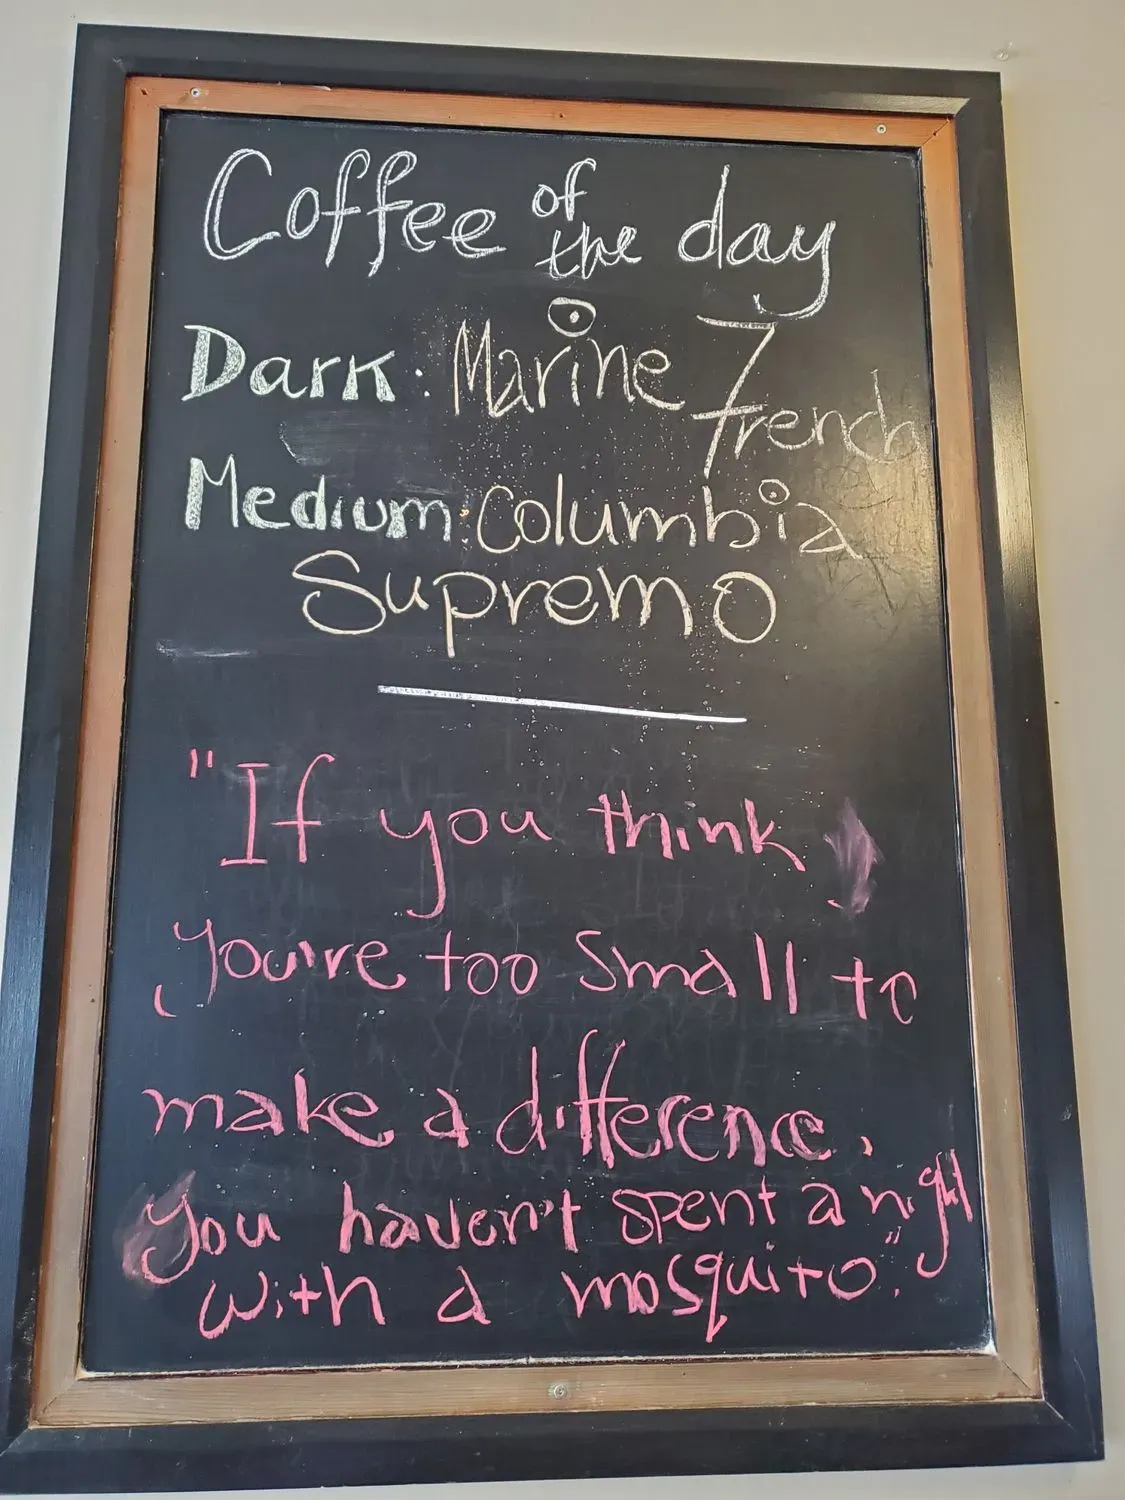 Coffee of the day
Dark: Marine French
Medium: Columbia
Supremo
"If you think
you're too small to
make a difference,
You haven't spent a night
with a mosquito".